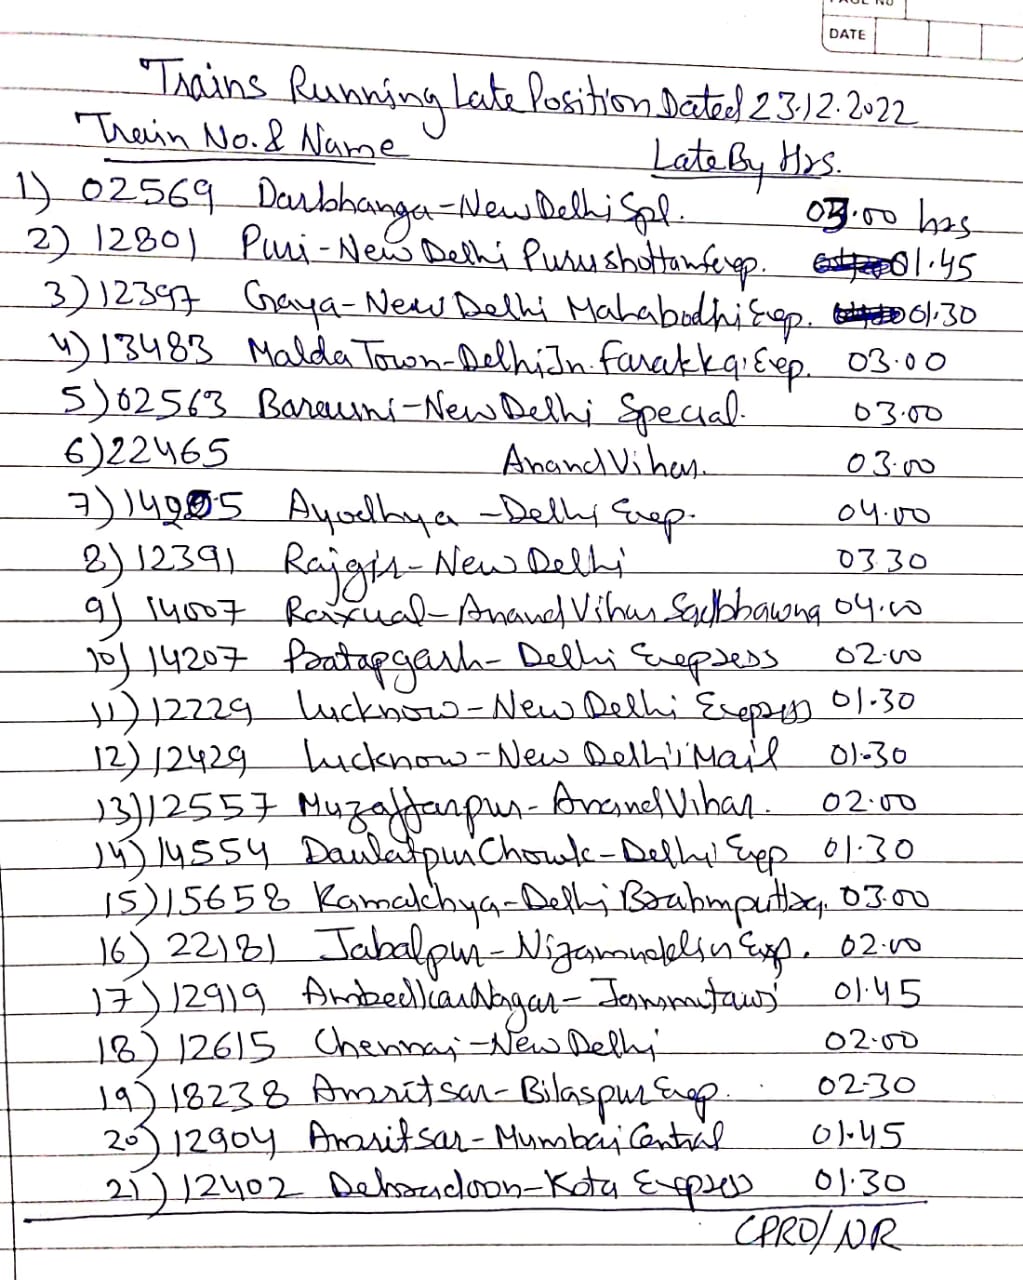 PAGE NO
DATE
Trains Running Late Position Dated 23.12.2022
Train No. & Name Late By Hrs.
1) 02569 Darbhanga-New Delhi Spl. 03.00 hrs
2) 12801 Puri-New Delhi Purushottam Exp. 01.45
3) 12397 Gaya-New Delhi Mahabodhi Exp. 01.30
4) 13483 Malda Town-Delhi Jn. Farakka Exp. 03.00
5) 02563 Barauni-New Delhi Special. 03.00
6) 22465 Anand Vihar. 03.00
7) 14205 Ayodhya-Delhi Exp. 04.00
8) 12391 Rajgir-New Delhi 03.30
9) 14007 Raxual-Anand Vihar Sadbhawna 04.00
10) 14207 Pratapgarh-Delhi Express 02.00
11) 12229 Lucknow-New Delhi Express 01.30
12) 12429 Lucknow-New Delhi Mail 01.30
13) 12557 Muzaffarpur-Anand Vihar. 02.00
14) 14554 Daulatpur Chowk-Delhi Exp 01.30
15) 15658 Kamakhya-Delhi Brahmputra. 03.00
16) 22181 Jabalpur-Nizamuddin Exp. 02.00
17) 12919 Ambedkar Nagar-Jammutawi 01.45
18) 12615 Chennai-New Delhi 02.00
19) 18238 Amritsar-Bilaspur Exp. 02.30
20) 12904 Amritsar-Mumbai Central 01.45
21) 12402 Dehradoon-Kota Express 01.30
CPRO/NR